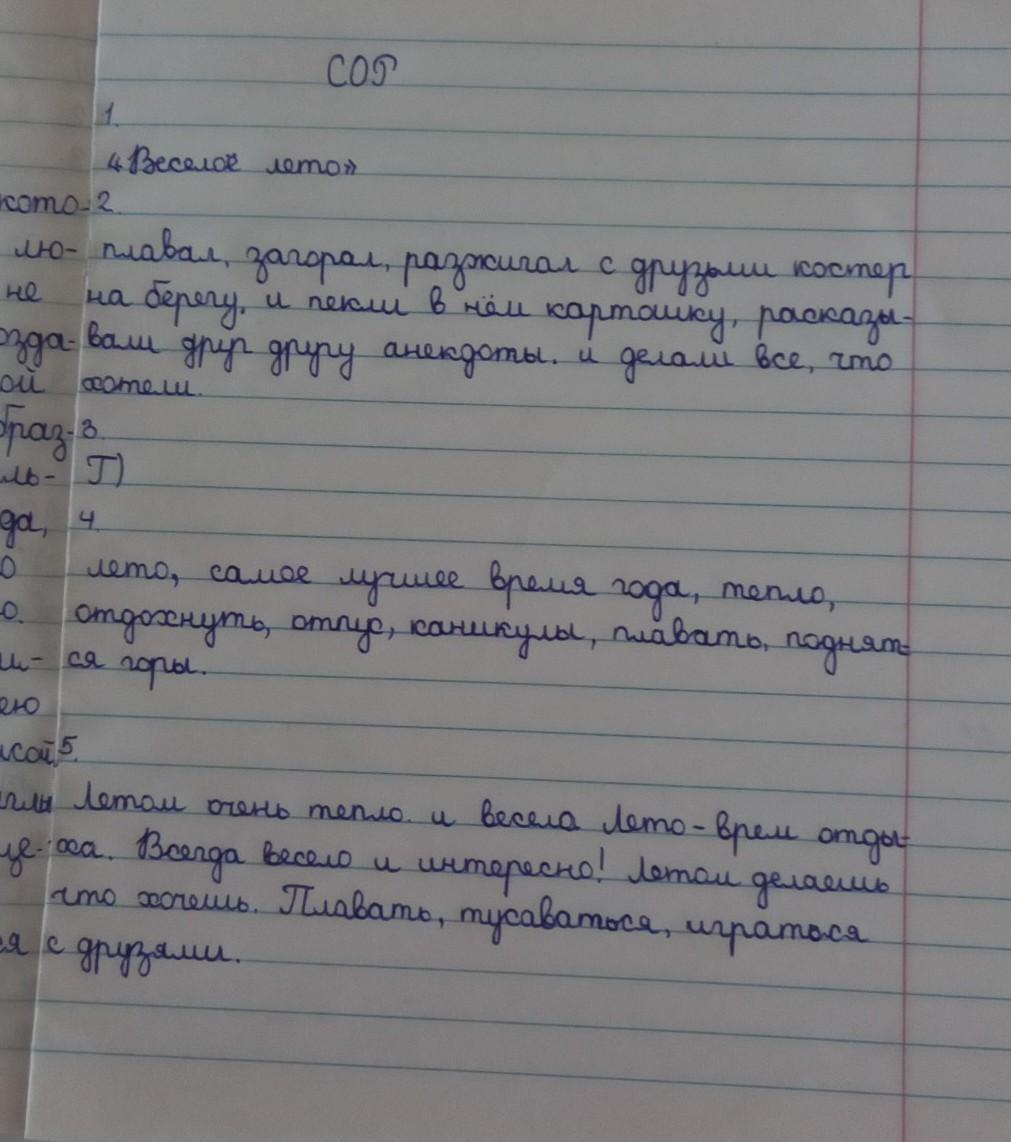 СОР
1.
«Веселое лето»
кото- 2.
лю- плавал, загорал, разжигал с друзьми костер
не на берегу, и пекли в нём картошку, расказы-
озда- вали друг другу анекдоты. и делали все, что
ой хотели.
браз- 3.
ль- Г)
да, 4.
о лето, самое лучшее время года, тепло,
о. отдохнуть, отпус, каникулы, плавать, поднят-
ш- ся горы.
ею
исой, 5.
Летом очень тепло. и весела Лето-врем отды-
це- оха. Всегда весело и интересно! Летом делаешь
что хочешь. Плавать, тусаваться, играться
ся с друзями.